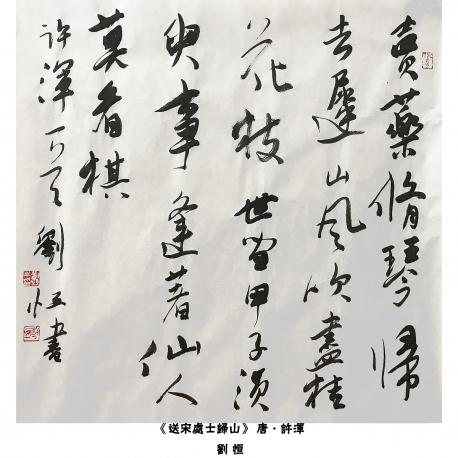 賣藥脩琴歸
去遲山風吹盡桂
花枝世間甲子須
臾事逢著仙人
莫看棋
許渾 劉恒書
《送宋處士歸山》唐·許渾
劉恒